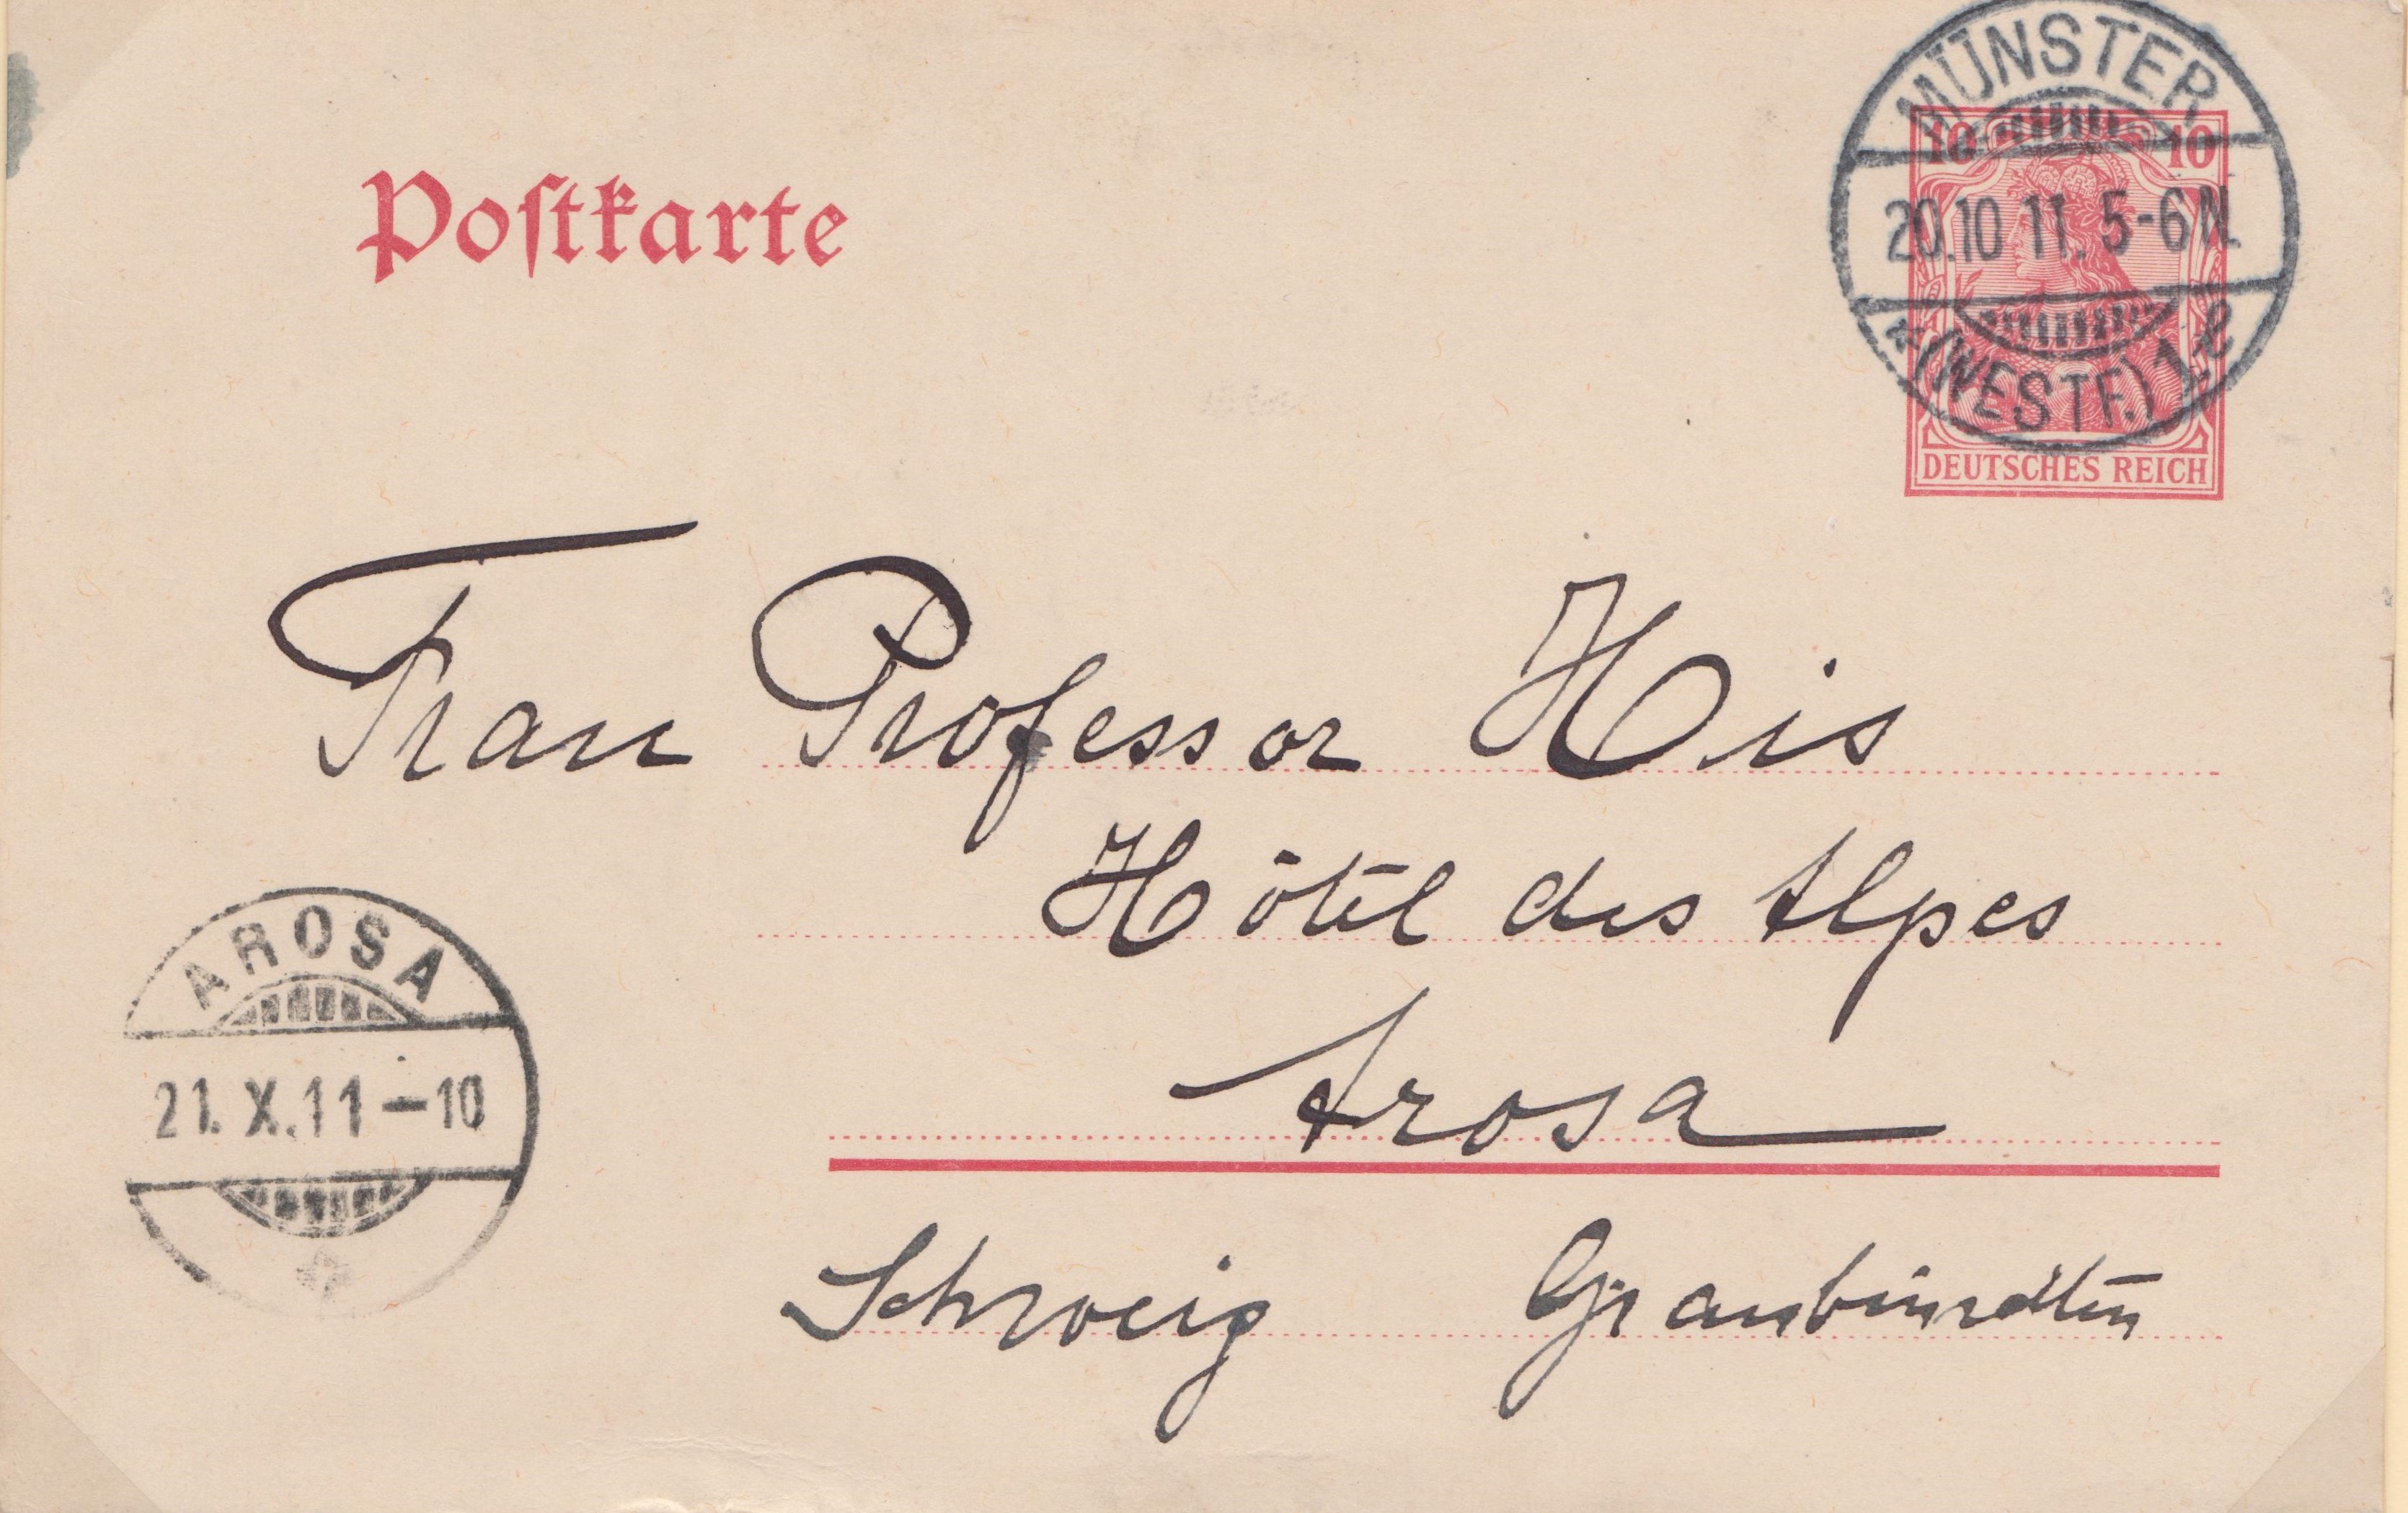 Postkarte
MÜNSTER
10 10
20.10 11. 5-6 N.
* (WESTF.) 1. e
DEUTSCHES REICH
Frau Professor His
Hôtel des Alpes
Arosa
AROSA
21. X. 11 – 10
Schweiz Graubündten